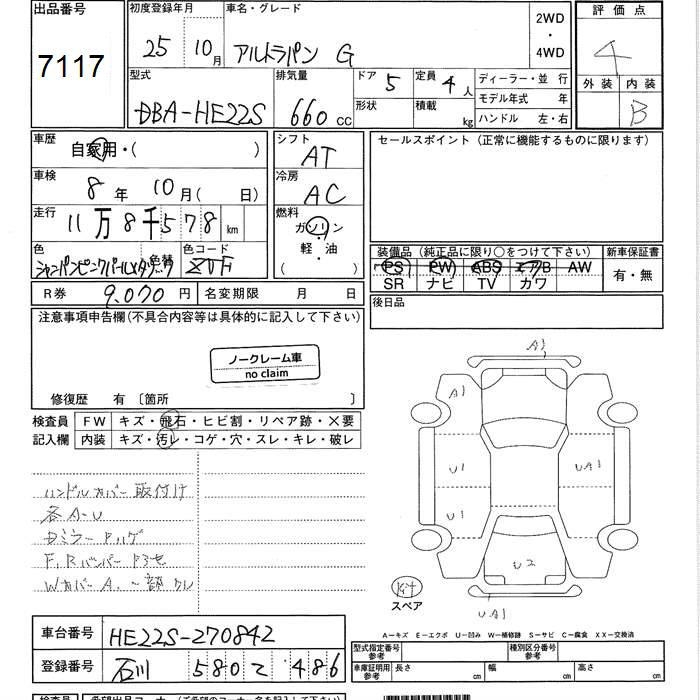 出品番号
7117
初度登録年月
25 10月
車名・グレード
アルトラパン G
2WD
・
4WD
評価点
4
外装 内装
B
型式
DBA-HE22S
排気量
660 cc
ドア 5
形状
定員 4人
積載 kg
ディーラー・並行
モデル年式 年
ハンドル 左・右
車歴
自家用・( )
車検
8年 10月( 日)
走行
11万8千578 km
色
色替
色コード
ZVF
シフト
AT
冷房
AC
燃料
ガソリン
・
軽・油
( )
セールスポイント (正常に機能するものに限ります)
装備品 (純正品に限り○をつけて下さい)
PS PW ABS エアB AW
SR ナビ TV カワ
新車保証書
有・無
R券 9,070円
名変期限 月 日
後日品
注意事項申告欄(不具合内容等は具体的に記入して下さい)
ノークレーム車
no claim
修復歴 有 〔箇所 〕
検査員
記入欄
FW キズ・飛石・ヒビ割・リペア跡・✕要
内装 キズ・汚レ・コゲ・穴・スレ・キレ・破レ
ハンドルカバー取付け
各A-U
Dミラー Pハゲ
F,Rバンパー
WカバーA
A1
A1
U1
UA1
U1
U2
UA1
スペア
A-キズ E-エクボ U-凹み W-補修跡 S-サビ C-腐食 XX-交換済
車台番号 HE22S-270842
登録番号 石川 580 て 486
型式指定番号
参考
種類区分番号
参考
車庫証明用
参考
長さ cm 幅 cm 高さ cm